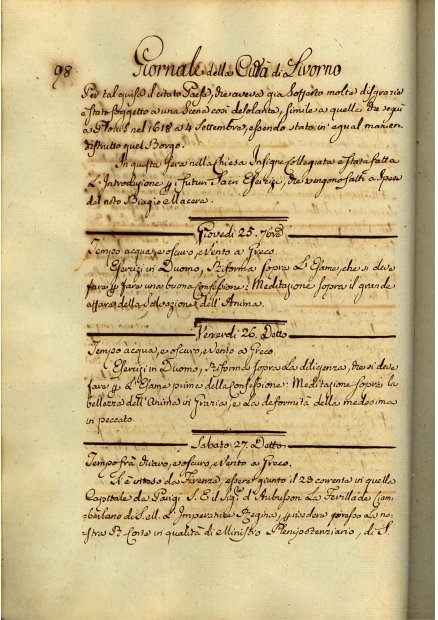 98 Giornale della Città di Livorno
Per tal guisa il citato Paese, che aveva già sofferto molte disgrazie
è stato soggetto a una Scena così desolante, simile a quella che seguì
nel 1618 a 4 Settembre, essendo stato in egual maniera
distrutto quel Borgo.
In questa sera nella Chiesa Insigne Collegiata è stata fatta
L'Introduzione p i futuri Sacri Esercizi, che vengono fatti a spese
del noto Biagio Macera.
Giovedì 25. 9bre
Tempo acqua, e oscuro, e Vento a Greco.
Esercizi in Duomo, Riforma sopra L'Esame, che si deve
fare p fare una buona Confessione: Meditazione sopra il grande
affare della Salvazione dell'Anima.
Venerdì 26. Detto
Tempo acqua, e oscuro, e Vento a Greco.
Esercizi in Duomo, Riforma sopra La diligenza, che si deve
fare p L'Esame primo della Confessione: Meditazione sopra la
bellezza dell'Anima in Grazia, e La deformità della medesima
in peccato.
Sabato 27. Detto
Tempo frà chiaro, e oscuro, e Vento a Greco.
Si è inteso da Firenze, essere giunto il 23 corrente in quella
Capitale da Parigi S. E. il Sig. d'Aubusson La Feuillade Ciam-
berlano di S. M. L'Imperatrice Regina, p risedere presso La no-
stra R. Corte in qualità di Ministro Plenipotenziario, di S.